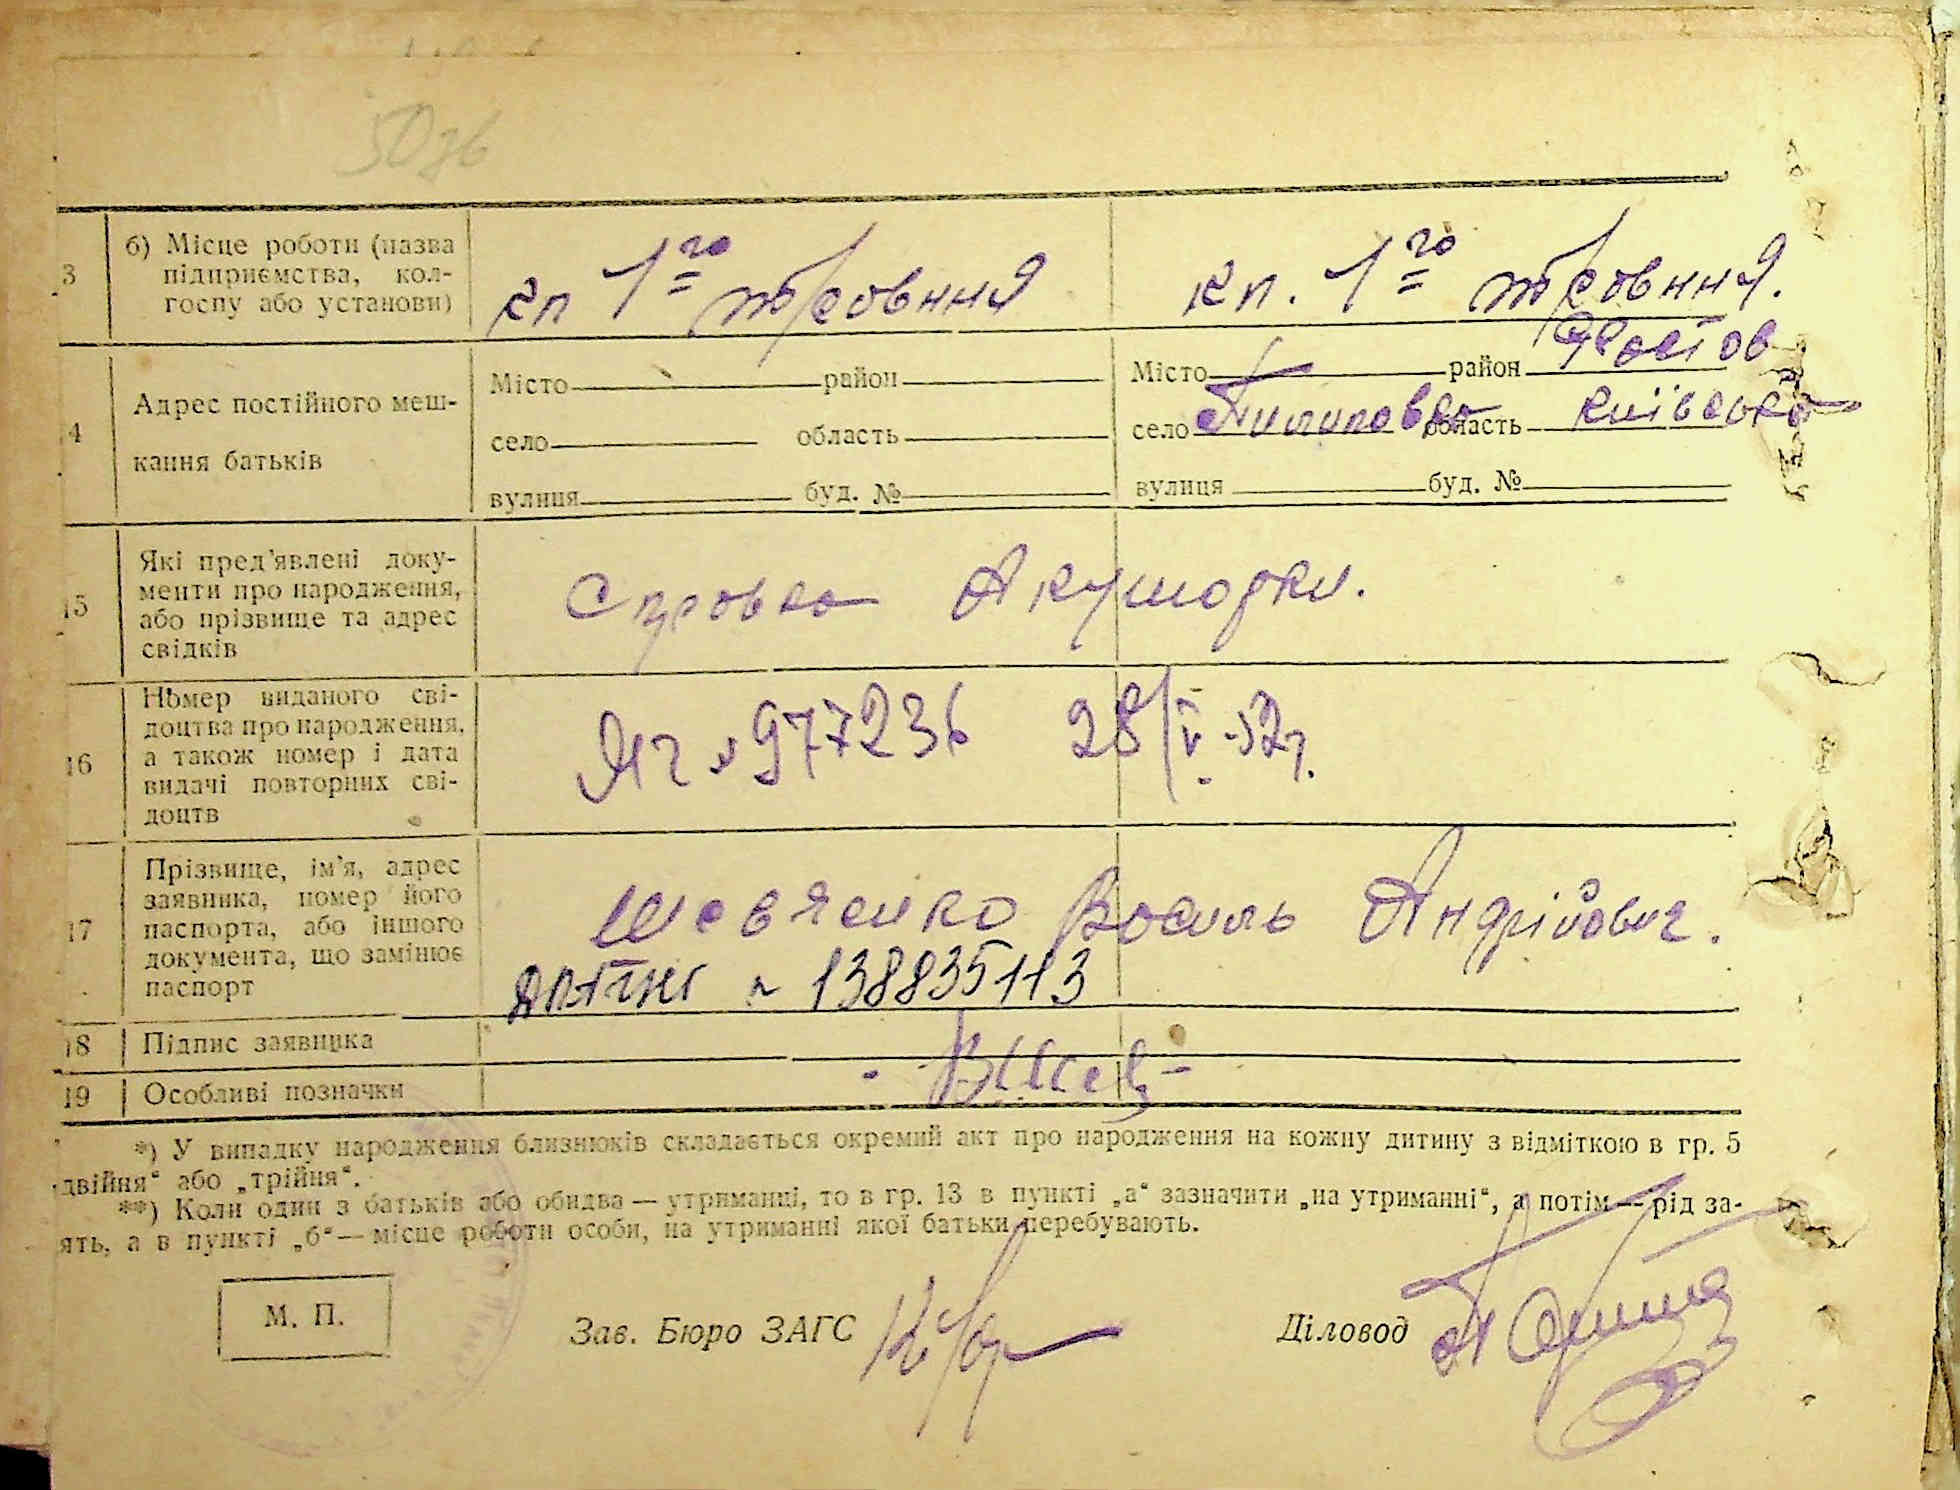 50 зб
3
б) Місце роботи (назва
підприємства, кол-
госпу або установи)
кп 1го травння
кп. 1го травння.
4
Адрес постійного меш-
кання батьків
Місто район
село область
вулиця буд. №
Місто район Фастов
село Пилиповка область київська
вулиця буд. №
15
Які пред'явлені доку-
менти про народження,
або прізвище та адрес
свідків
Справка Акушорки.
16
Номер виданого сві-
доцтва про народження,
а також номер і дата
видачі повторних сві-
доцтв
ЯЧ № 977236 28/V-52г.
17
Прізвище, ім'я, адрес
заявника, номер його
паспорта, або іншого
документа, що замінює
паспорт
Шевченко Василь Андрійович.
№ 138835113
18 Підпис заявника
ВШев
19 Особливі позначки
*) У випадку народження близнюків складається окремий акт про народження на кожну дитину з відміткою в гр. 5
двійня“ або „трійня“.
**) Коли один з батьків або обидва — утриманні, то в гр. 13 в пункті „а“ зазначити „на утриманні“, а потім — рід за-
ять, а в пункті „б“ — місце роботи особи, на утриманні якої батьки перебувають.
М. П.
Зав. Бюро ЗАГС
Діловод